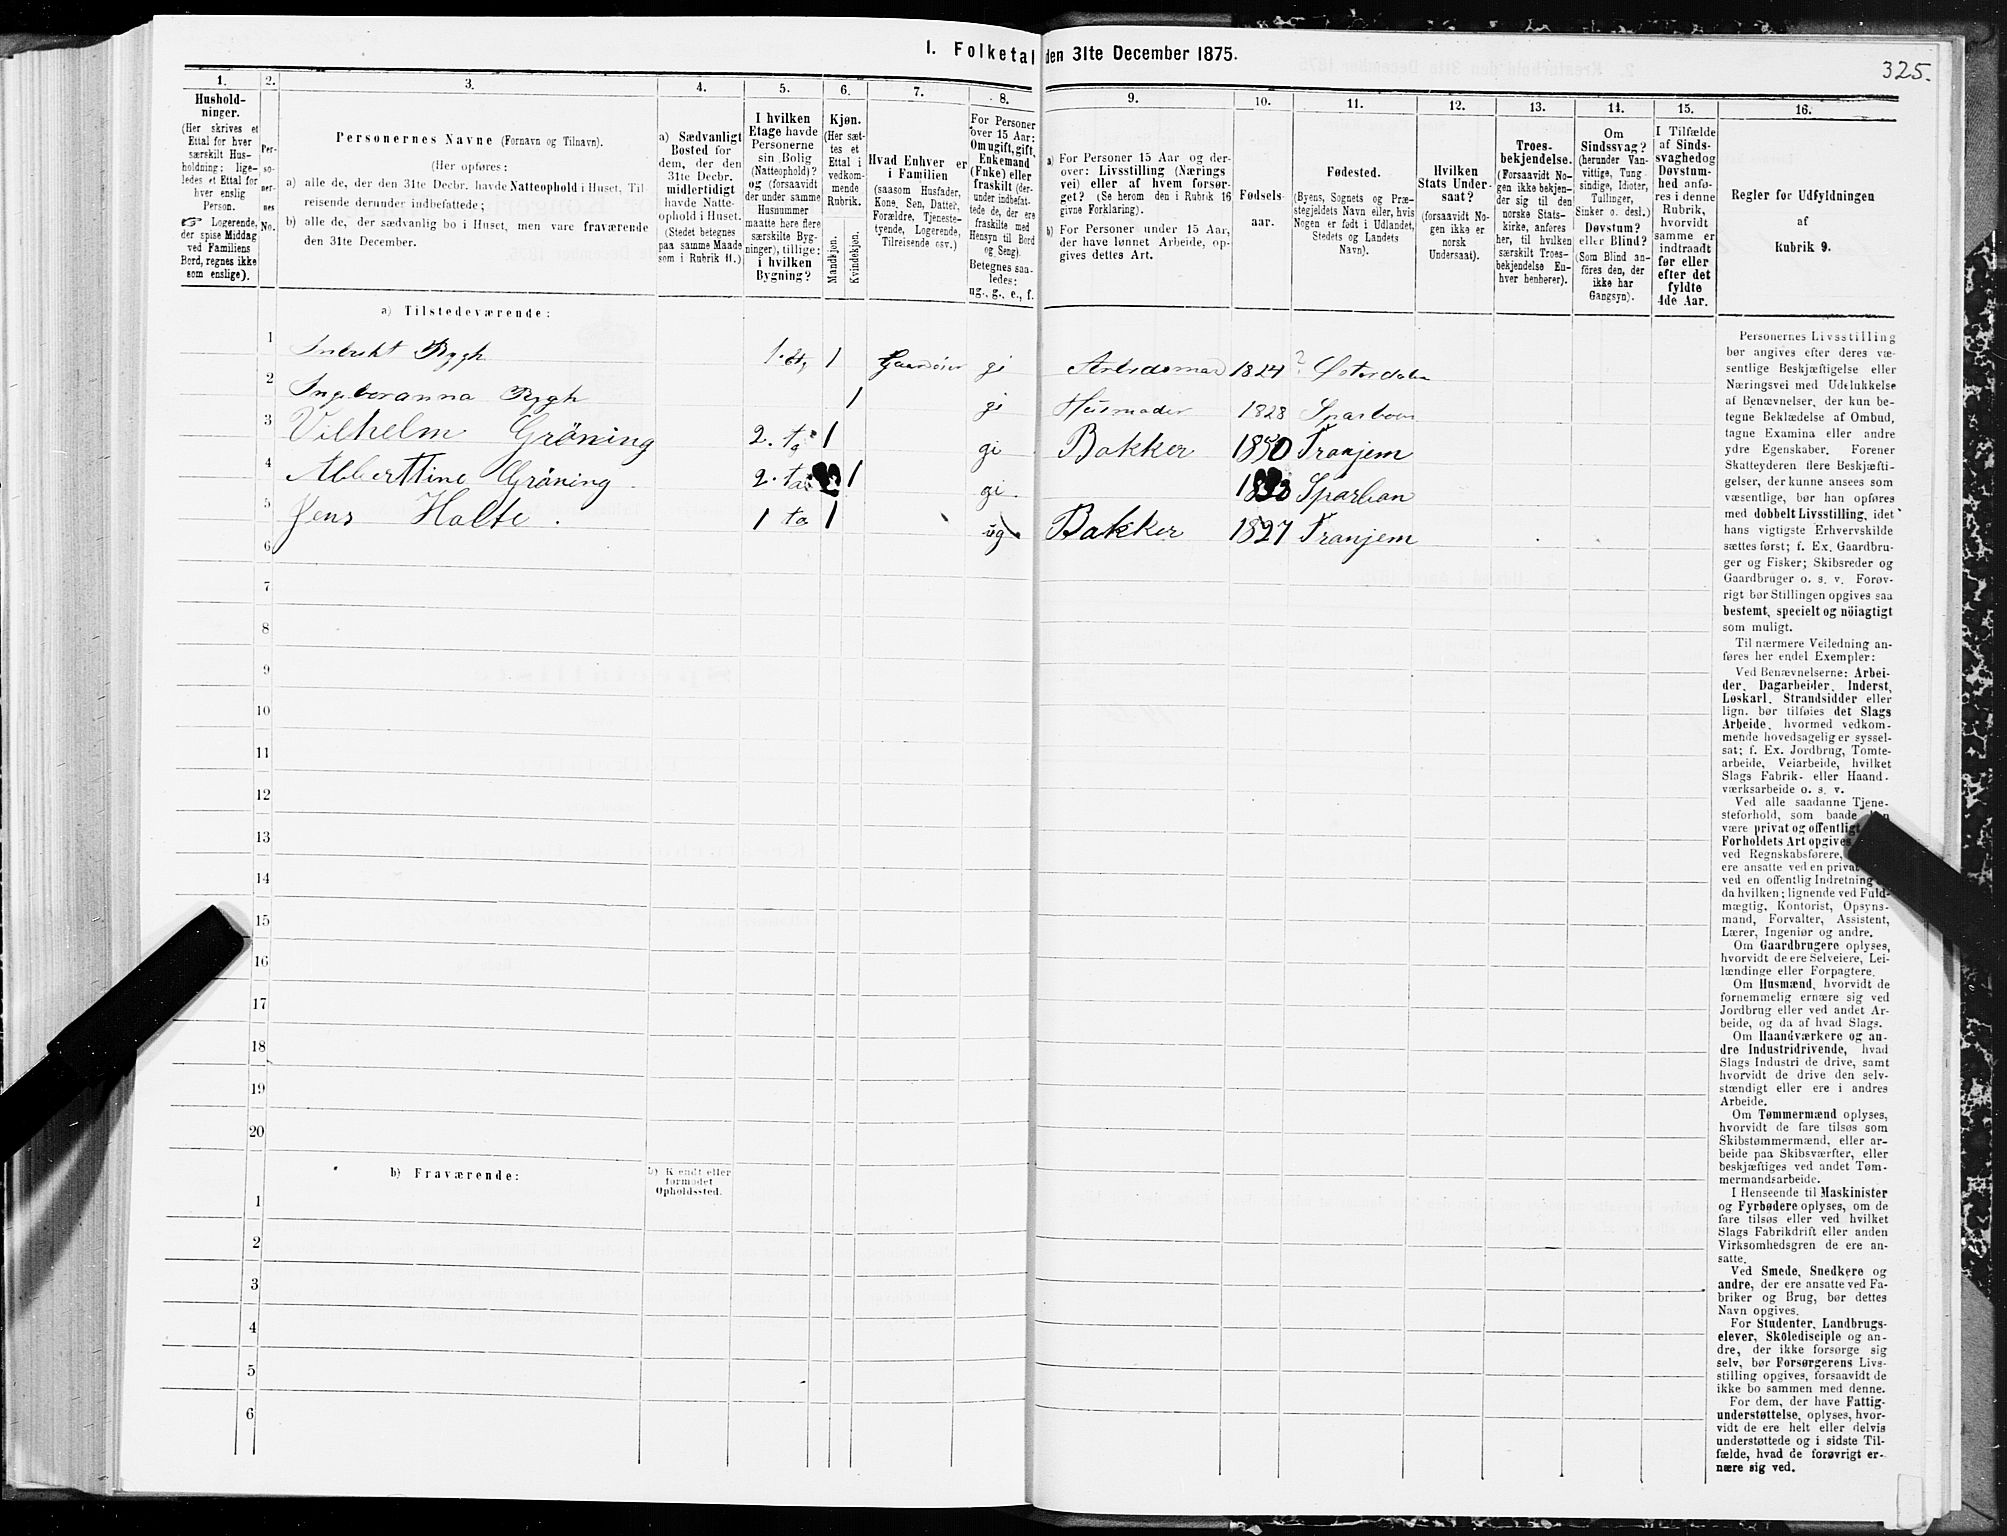 I. Folketal den 31te December 1875.
325.
1.
2.
3.
4.
5.
6.
7.
8.
9.
10.
11.
12.
13.
14.
15.
16.
Hushold-
ninger.
(Her skrives et
Ettal for hver
særskilt Hus-
holdning; lige-
ledes et Ettal for
hver enslig
Person.
☞ Logerende,
der spise Middag
ved Familiens
Bord, regnes ikke
som enslige).
Per-
so-
ner-
nes
No.
Personernes Navne (Fornavn og Tilnavn).
(Her opføres:
a) alle de, der den 31te Decbr. havde Natteophold i Huset, Til-
reisende derunder indbefattede;
b) alle de, der sædvanlig bo i Huset, men vare fraværende
den 31te December.
a) Sædvanligt
Bosted for
dem, der den
31te Decbr.
midlertidigt
havde Natte-
ophold i Huset.
(Stedet betegnes
paa samme Maade
som i Rubrik 11.)
I hvilken
Etage havde
Personerne
sin Bolig
(Natteophold)?
og (forsaavidt
der under samme
Husnummer
maatte høre flere
særskilte Byg-
ninger), tillige:
i hvilken
Bygning?
Kjøn.
(Her sæt-
tes et
Ettal i
vedkom-
mende
Rubrik.
Mandkjøn.
Kvindekjøn.
Hvad Enhver er
i Familien
(saasom Husfader,
Kone, Søn, Datter,
Forældre, Tjeneste-
tyende, Logerende,
Tilreisende osv.)
For Personer
over 15 Aar:
Om ugift, gift,
Enkemand
(Enke) eller
fraskilt (der-
under indbefat-
tede de, der ere
fraskilte med
Hensyn til Bord
og Seng).
Betegnes saa-
ledes:
ug., g., e., f.
a) For Personer 15 Aar og der-
over: Livsstilling (Nærings
vei) eller af hvem forsør-
get? (Se herom den i Rubrik 16
givne Forklaring).
b) For Personer under 15 Aar,
der have lønnet Arbeide, op-
gives dettes Art.
Fødsels-
aar.
Fødested.
(Byens, Sognets og Præ-
stegjeldets Navn eller, hvis
Nogen er født i Udlandet,
Stedets og Landets
Navn).
Hvilken
Stats Under-
saat?
(forsaavidt No-
gen ikke er
norsk
Undersaat).
Troes-
bekjendelse.
(Forsaavidt No-
gen ikke bekjen-
der sig til den
norske Stats-
kirke, anføres
her, til hvilken
særskilt Troes-
bekjendelse En-
hver henhører).
Om
Sindssvag?
(herunder Van-
vittige, Tung-
sindige, Idioter,
Tullinger,
Sinker o. desl.)
Døvstum?
eller Blind?
(Som Blind an-
føres den, der
ikke har
Gangsyn).
I Tilfælde
af Sinds-
svaghed og
Døvstum-
hed anfø-
res i denne
Rubrik,
hvorvidt
samme er
indtraadt
før eller
efter det
fyldte
4de Aar.
Regler for Udfyldningen
af
Rubrik 9.
a) Tilstedeværende:
1 Rygh 1. 1 gi 1824 ? Østerdalen
2 Ingeboranna Rygh 1 gi Husmoder 1828
3 Vilhelm Gröning 2. ta 1 gi Bakker 1850 Tranjem
4 Alberttine Gröning 2. ta 1 gi Sparban
5 Jens Holte. 1 ta 1 ug Bakker 1827 Tranjem
6
7
8
9
10
11
12
13
14
15
16
17
18
19
20
b) Fraværende:
b) Kjendt eller
formodet
Opholdssted.
1
2
3
4
5
6
Personernes Livsstilling
bør angives efter deres væ-
sentlige Beskjæftigelse eller
Næringsvei med Udelukkelse
af Benævnelser, der kun be-
tegne Beklædelse af Ombud,
tagne Examina eller andre
ydre Egenskaber. Forener
Skatteyderen flere Beskjæfti-
gelser, der kunne ansees som
væsentlige, bør han opføres
med dobbelt Livsstilling, idet
hans vigtigste Erhvervskilde
sættes først; f. Ex. Gaardbru-
ger og Fisker; Skibsreder og
Gaardbruger o. s. v. Forøv-
rigt bør Stillingen opgives saa
bestemt, specielt og nöiagtigt
som muligt.
Til nærmere Veiledning an-
føres her endel Exempler:
Ved Benævnelserne: Arbei-
der, Dagarbeider, Inderst,
Løskarl, Strandsidder eller
lign. bør tilføies det Slags
Arbeide, hvormed vedkom-
mende hovedsagelig er syssel-
sat; f. Ex. Jordbrug, Tomte-
arbeide, Veiarbeide, hvilket
Slags Fabrik- eller Haand-
værksarbeide o. s. v.
Ved alle saadanne Tjene-
steforhold, som baade
være privat og offentligt
Forholdets Art opgives
ved Regnskabsførere,
ere ansatte ved en privat
ved en offentlig Indretning
da hvilken; lignende ved Fuld-
mægtig, Kontorist, Opsyns-
mand, Forvalter, Assistent,
Lærer, Ingeniør og andre.
Om Gaardbrugere oplyses,
hvorvidt de ere Selveiere, Lei-
lændinge eller Forpagtere.
Om Husmænd, hvorvidt de
fornemmelig ernære sig ved
Jordbrug eller ved andet Ar-
beide, og da af hvad Slags.
Om Haandværkere og an-
dre Industridrivende, hvad
Slags Industri de drive, samt
hvorvidt de drive den selv-
stændigt eller ere i andres
Arbeide.
Om Tømmermænd oplyses,
hvorvidt de fare tilsøs som
Skibstømmermænd, eller ar-
beide paa Skibsværfter, eller
beskjæftiges ved andet Tøm-
mermandsarbeide.
I Henseende til Maskinister
og Fyrbødere oplyses, om de
fare tilsøs eller ved hvilket
Slags Fabrikdrift eller anden
Virksomhedsgren de ere an-
satte.
Ved Smede, Snedkere og
andre, der ere ansatte ved Fa-
briker og Brug, bør dettes
Navn opgives.
For Studenter, Landbrugs-
elever, Skoledisciple og an-
dre, der ikke forsørge sig
selv, bør Forsørgerens Livs-
stilling opgives, forsaavidt de
ikke bo sammen med denne.
For dem, der have Fattig-
understøttelse, oplyses, hvor-
vidt de ere helt eller delvis
understøttede og i sidste Til-
fælde, hvad de forøvrigt er-
nære sig ved.